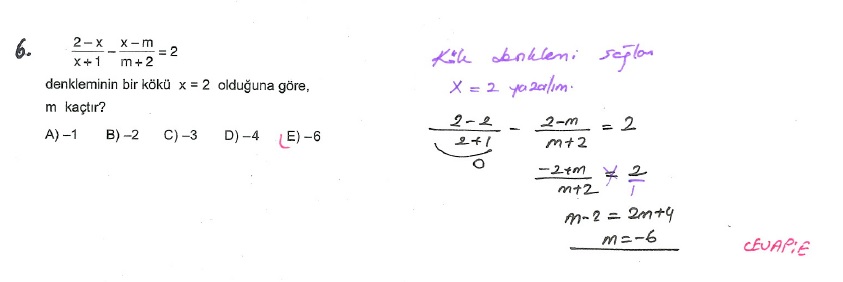 6. (2-x)/(x+1) - (x-m)/(m+2) = 2
denkleminin bir kökü x = 2 olduğuna göre,
m kaçtır?
A) -1 B) -2 C) -3 D) -4 E) -6
Kök denklemi sağlar
x = 2 yazalım.
(2-2)/(2+1) - (2-m)/(m+2) = 2
0
(-2+m)/(m+2) = 2/1
m-2 = 2m+4
m = -6
CEVAP: E